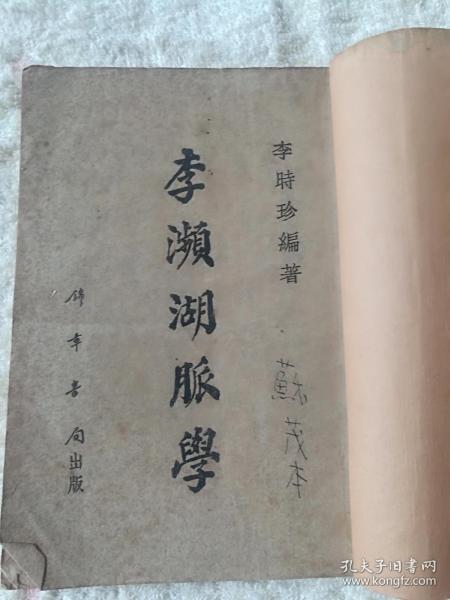 李時珍編著
蘇茂本
李瀕湖脈學
錦章書局出版
孔夫子旧书网
www.kongfz.com